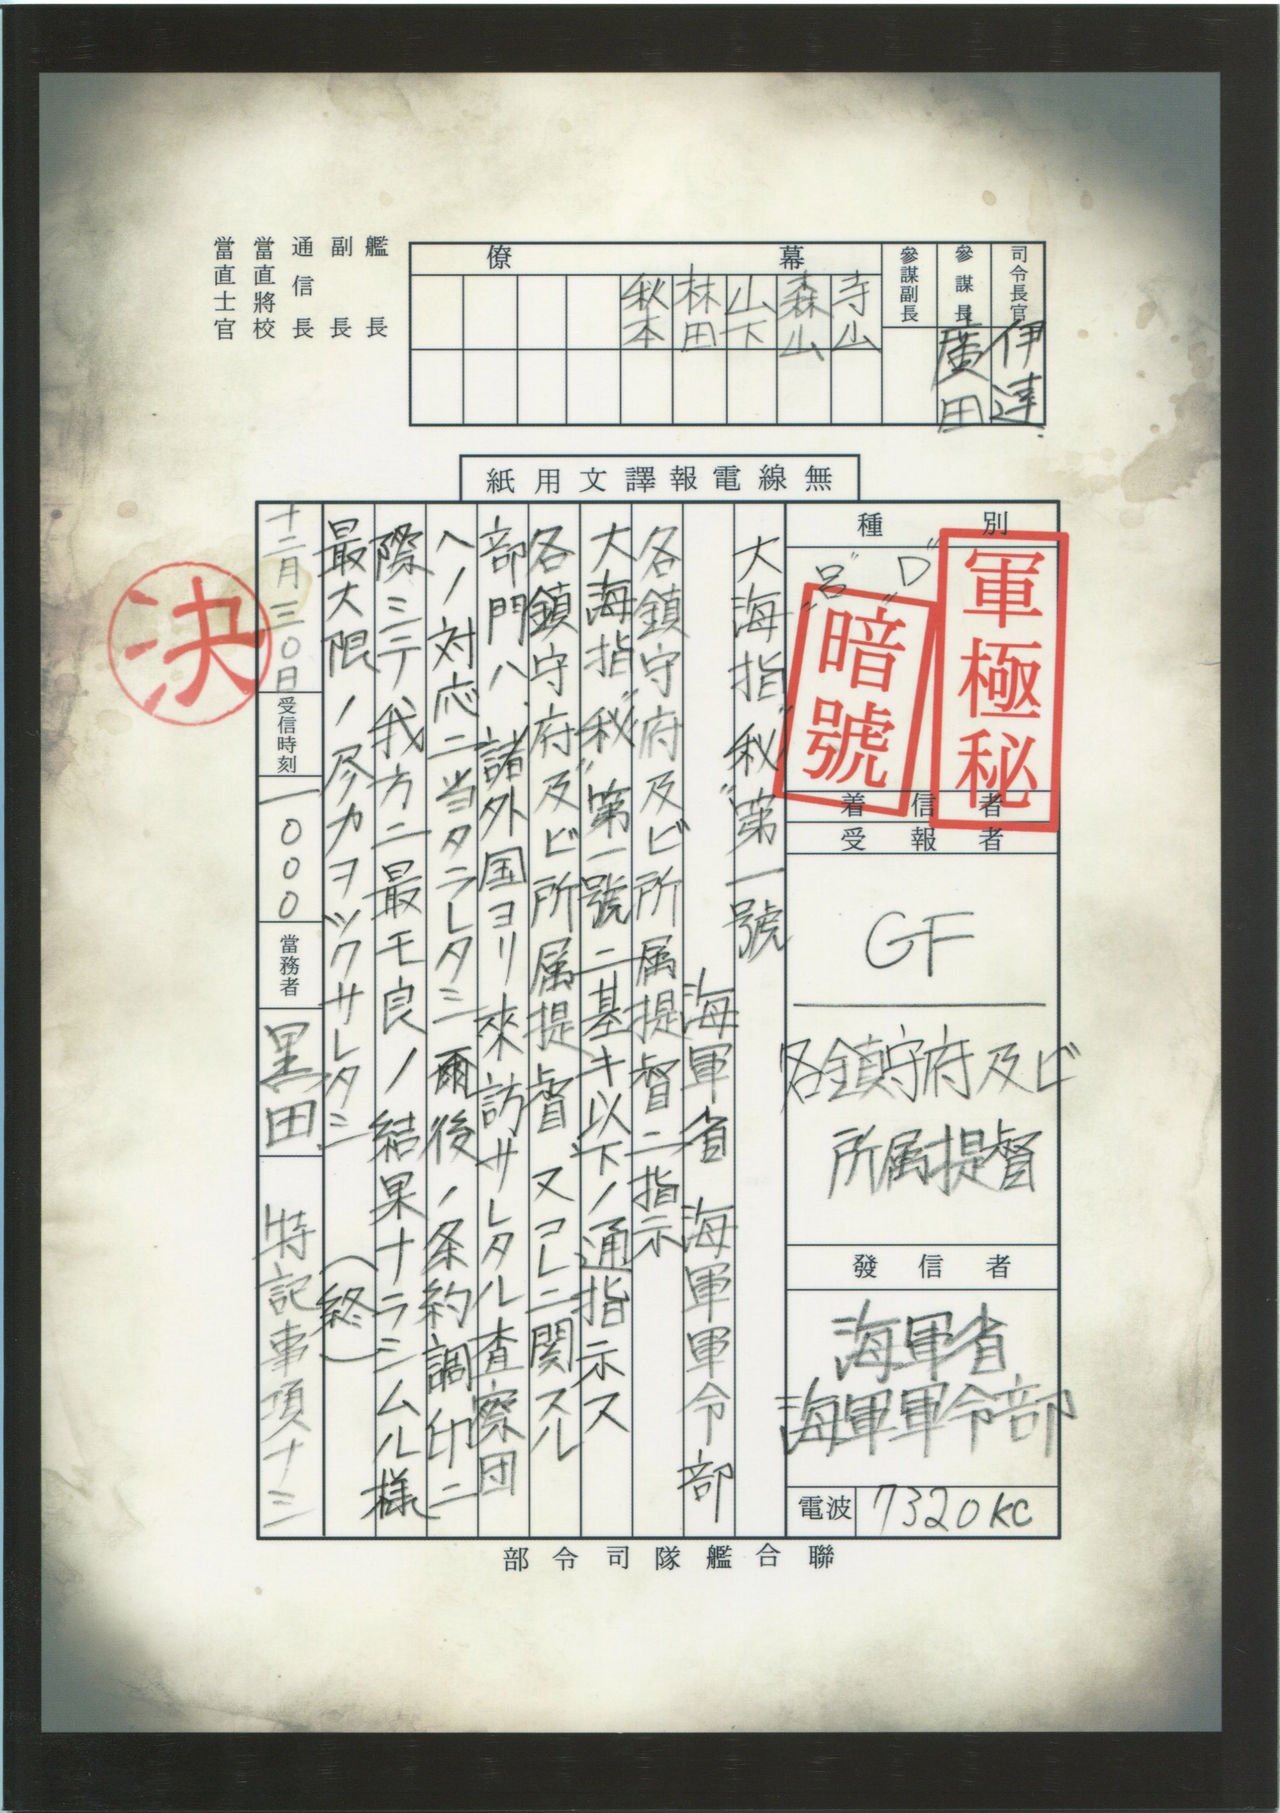 司令長官
伊達
參謀長
廣田
參謀副長
幕僚
寺山
森山
山下
林田
秋本
艦長
副長
通信長
當直將校
當直士官
無線電報譯文用紙
種別
"呂" "D"
軍極秘
暗號
着信者
受報者
GF
各鎮守府及ビ
所属提督
發信者
海軍省
海軍軍令部
電波
7320KC
大海指"秘"第一號
海軍省 海軍軍令部
各鎮守府及ビ所属提督ニ指示
大海指"秘"第一號ニ基キ以下ノ通指示ス
各鎮守府及ビ所属提督、又コレニ関スル
部門ハ、諸外国ヨリ來訪サレタル査察団
ヘノ対応ニ当タラレタシ 爾後ノ条約調印ニ
際ミテ我方ニ最モ良ノ結果ナラシムル様
最大限ノ尽力ヲツクサレタシ (終)
十二月三〇日
受信時刻
一〇〇〇
當務者
黒田
特記事項ナシ
決
聯合艦隊司令部